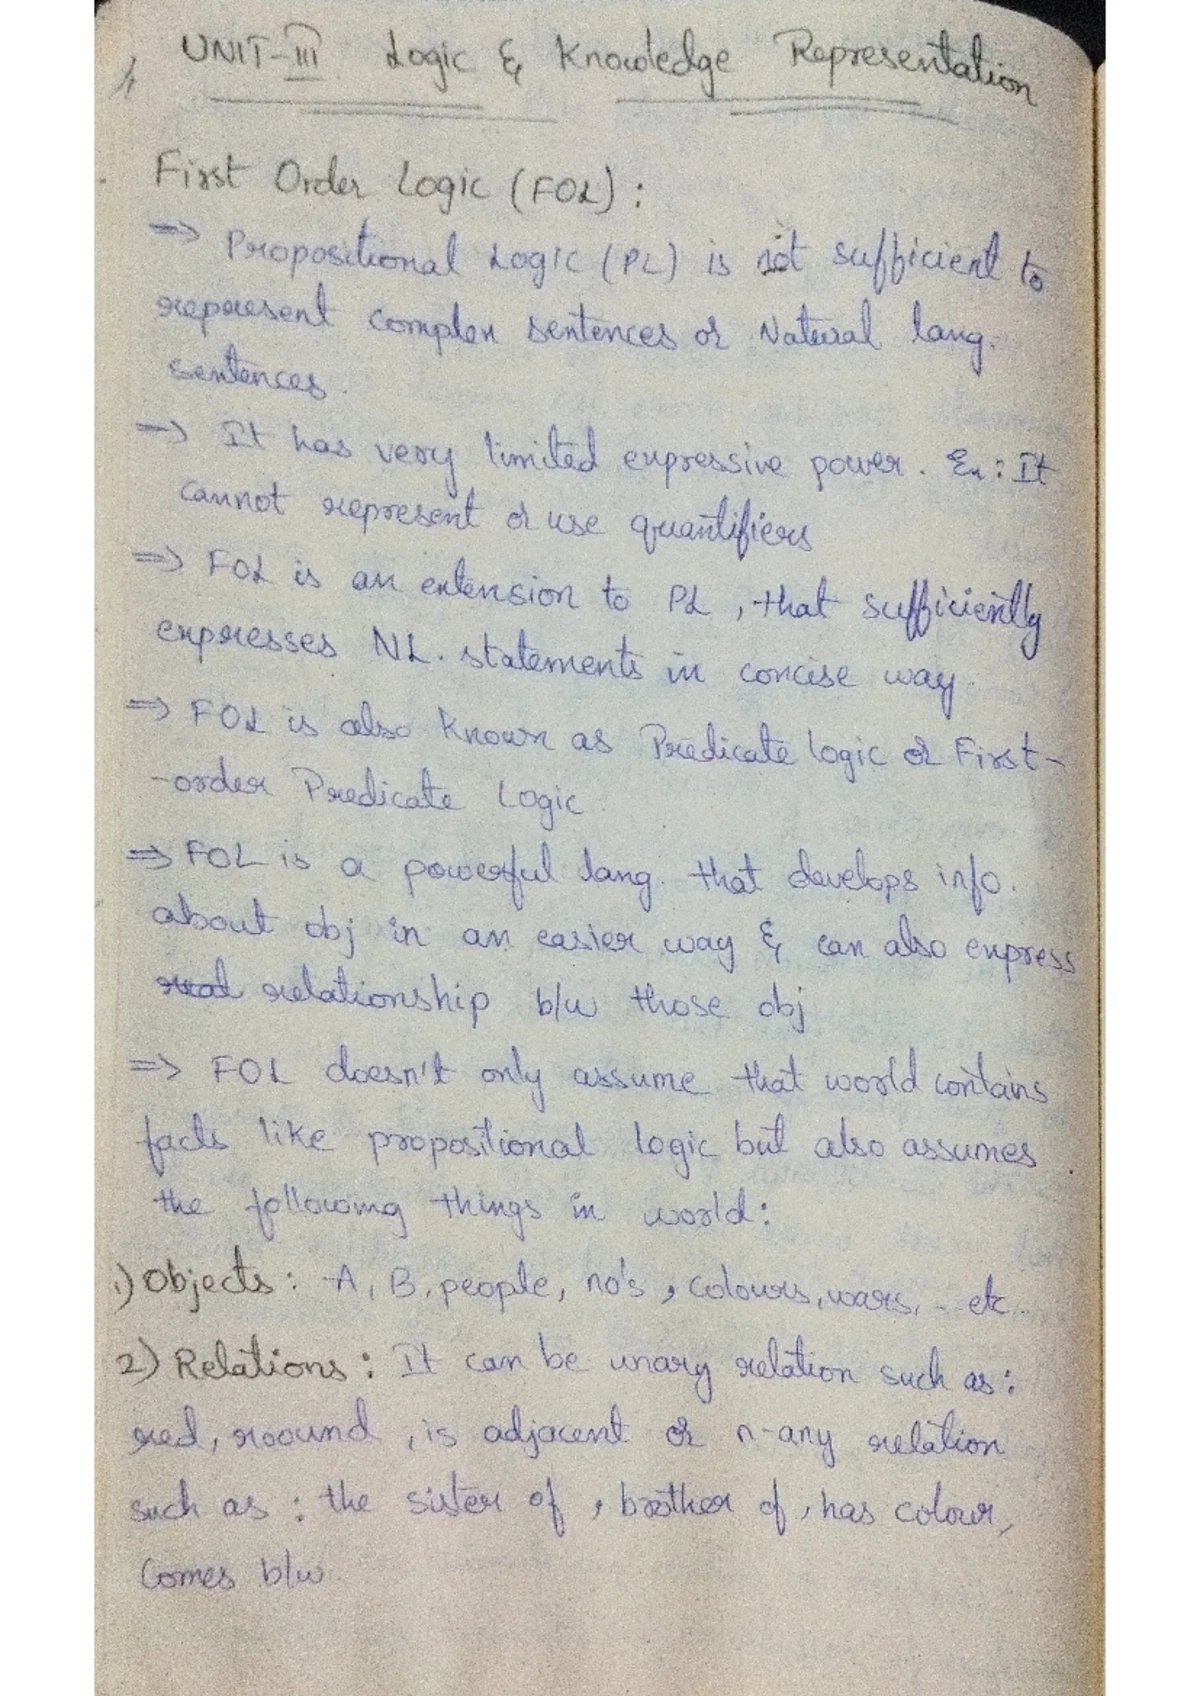 UNIT-III Logic & Knowledge Representation
First Order Logic (FOL) :
=> Propositional Logic (PL) is not sufficient to
represent complex sentences or Natural lang.
sentences.
=> It has very limited expressive power. Ex : It
cannot represent or use quantifiers
=> FOL is an extension to PL, that sufficiently
expresses NL. statements in concise way.
=> FOL is also known as Predicate logic or First-
-order Predicate Logic.
=> FOL is a powerful lang. that develops info.
about obj in an easier way & can also express
relationship b/w those obj
=> FOL doesn't only assume that world contains
facts like propositional logic but also assumes
the following things in world:
1) Objects : A, B, people, no's, colours, wars, .. etc..
2) Relations : It can be unary relation such as :
red, roound, is adjacent or n-any relation
such as : the sister of, brother of, has colour,
Comes b/w.